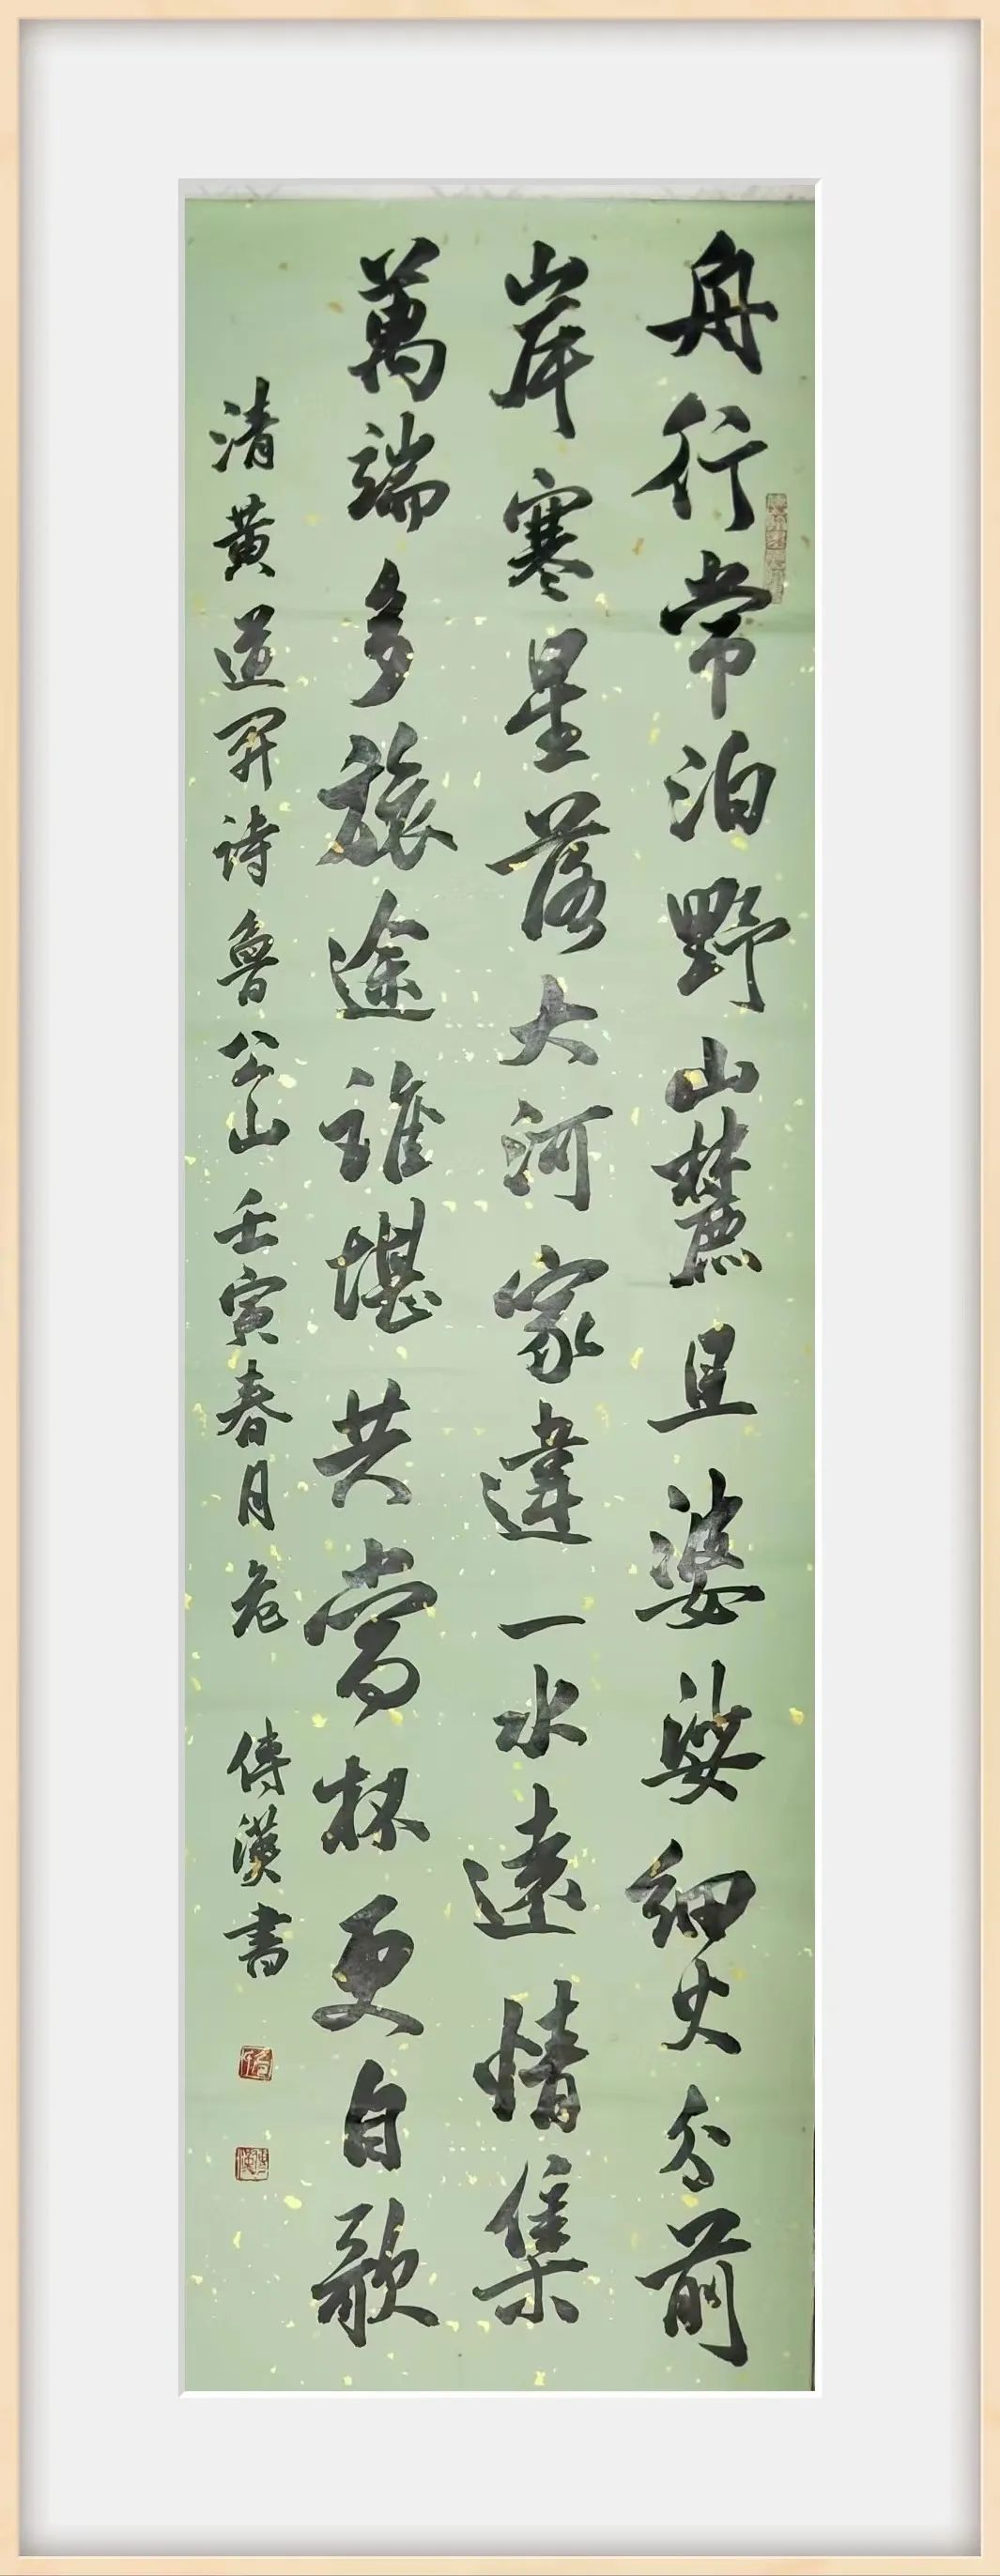 舟行常泊野山麓且婆娑細火分前
岸寒星落大河家違一水遠情集
萬端多旅途誰堪共當杯更自歌
清黃道開詩魯公山壬寅春月危傳漢書